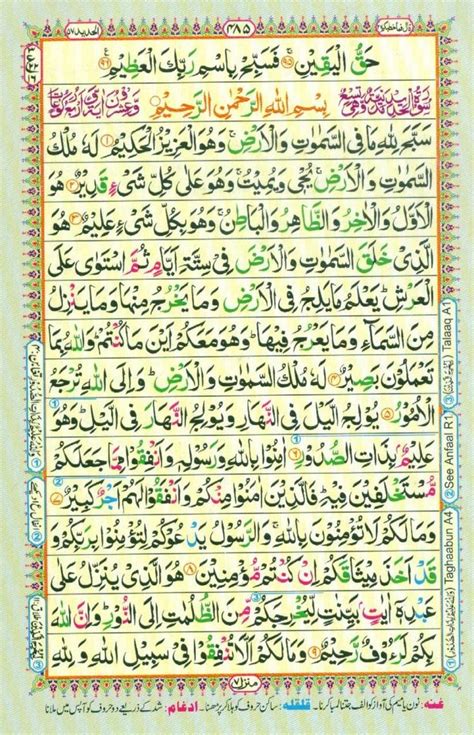 قال فما خطبكم ۲۷ ۴۸۵ الحديد ۵۷
حَقُّ الْيَقِيْنِ ۚ ۹۵ فَسَبِّحْ بِاسْمِ رَبِّكَ الْعَظِيْمِ ۹۶
سُوْرَةُ الْحَدِيْدِ مَدَنِيَّةٌ وَّهِيَ تِسْعٌ بِسْمِ اللّٰهِ الرَّحْمٰنِ الرَّحِيْمِ وَّعِشْرُوْنَ اٰيَةً وَّاَرْبَعُ رُكُوْعَاتٍ
سَبَّحَ لِلّٰهِ مَا فِي السَّمٰوٰتِ وَالْاَرْضِ ۚ وَهُوَ الْعَزِيْزُ الْحَكِيْمُ ۱ لَهٗ مُلْكُ
السَّمٰوٰتِ وَالْاَرْضِ ۚ يُحْيٖ وَيُمِيْتُ ۚ وَهُوَ عَلٰى كُلِّ شَيْءٍ قَدِيْرٌ ۲ هُوَ
الْاَوَّلُ وَالْاٰخِرُ وَالظَّاهِرُ وَالْبَاطِنُ ۚ وَهُوَ بِكُلِّ شَيْءٍ عَلِيْمٌ ۳ هُوَ
الَّذِيْ خَلَقَ السَّمٰوٰتِ وَالْاَرْضَ فِيْ سِتَّةِ اَيَّامٍ ثُمَّ اسْتَوٰى عَلَى
الْعَرْشِ ؕ يَعْلَمُ مَا يَلِجُ فِي الْاَرْضِ وَمَا يَخْرُجُ مِنْهَا وَمَا يَنْزِلُ
مِنَ السَّمَآءِ وَمَا يَعْرُجُ فِيْهَا ؕ وَهُوَ مَعَكُمْ اَيْنَ مَا كُنْتُمْ ؕ وَاللّٰهُ بِمَا
تَعْمَلُوْنَ بَصِيْرٌ ۴ لَهٗ مُلْكُ السَّمٰوٰتِ وَالْاَرْضِ ؕ وَاِلَى اللّٰهِ تُرْجَعُ
الْاُمُوْرُ ۵ يُوْلِجُ الَّيْلَ فِي النَّهَارِ وَيُوْلِجُ النَّهَارَ فِي الَّيْلِ ؕ وَهُوَ
عَلِيْمٌۢ بِذَاتِ الصُّدُوْرِ ۶ اٰمِنُوْا بِاللّٰهِ وَرَسُوْلِهٖ وَاَنْفِقُوْا مِمَّا جَعَلَكُمْ
مُّسْتَخْلَفِيْنَ فِيْهِ ؕ فَالَّذِيْنَ اٰمَنُوْا مِنْكُمْ وَاَنْفَقُوْا لَهُمْ اَجْرٌ كَبِيْرٌ ۷
وَمَا لَكُمْ لَا تُؤْمِنُوْنَ بِاللّٰهِ ۚ وَالرَّسُوْلُ يَدْعُوْكُمْ لِتُؤْمِنُوْا بِرَبِّكُمْ وَ
قَدْ اَخَذَ مِيْثَاقَكُمْ اِنْ كُنْتُمْ مُّؤْمِنِيْنَ ۸ هُوَ الَّذِيْ يُنَزِّلُ عَلٰى
عَبْدِهٖٓ اٰيٰتٍۭ بَيِّنٰتٍ لِّيُخْرِجَكُمْ مِّنَ الظُّلُمٰتِ اِلَى النُّوْرِ ؕ وَاِنَّ اللّٰهَ
بِكُمْ لَرَءُوْفٌ رَّحِيْمٌ ۹ وَمَا لَكُمْ اَلَّا تُنْفِقُوْا فِيْ سَبِيْلِ اللّٰهِ وَلِلّٰهِ
منزل ۷
غنہ: نون یا میم کی آواز کو الف جتنا لمبا کرنا۔ قلقلہ: ساکن حروف کو ہلا کر پڑھنا۔ ادغام: شد کے ذریعے دو حروف کو آپس میں ملانا
Talaaq A1
See Anfaal R1
Taghaabun A4